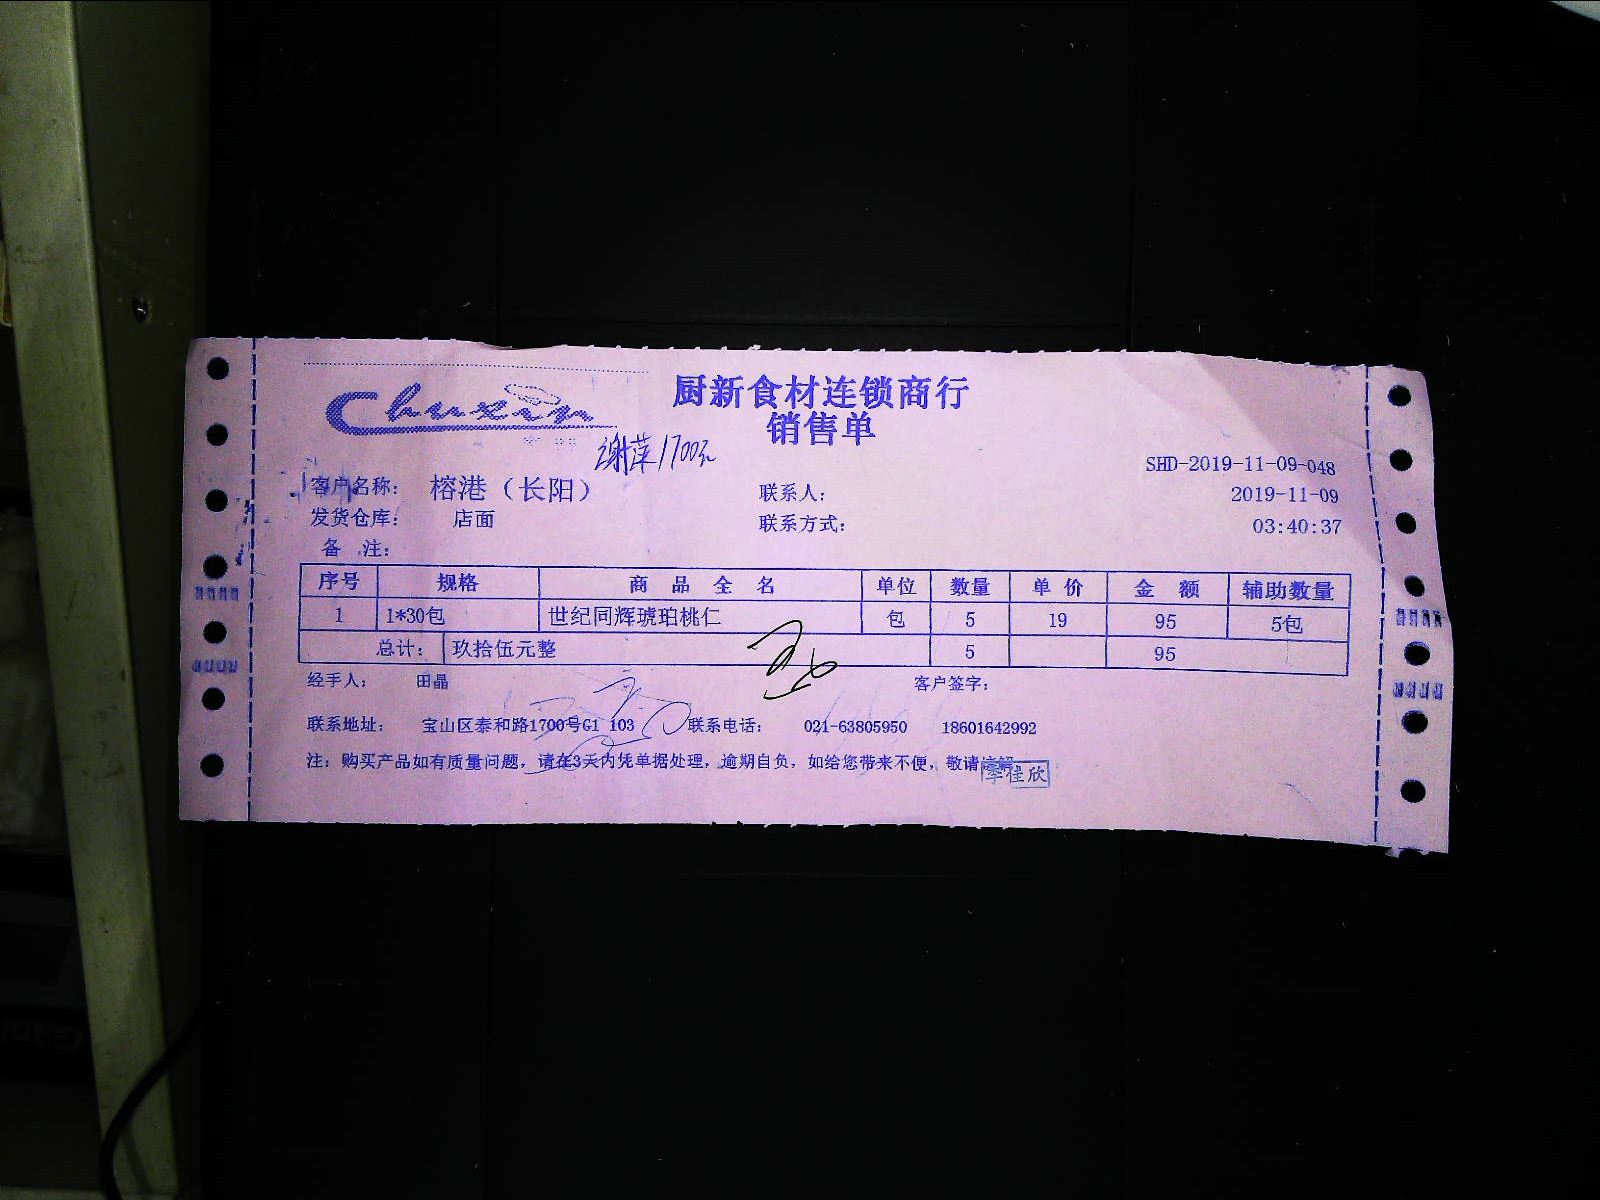 Chuxin
厨新食材连锁商行
销售单
谢萍1700元
SHD-2019-11-09-048
客户名称： 榕港（长阳） 联系人： 2019-11-09
发货仓库： 店面 联系方式： 03:40:37
备 注：
序号 规格 商 品 全 名 单位 数量 单 价 金 额 辅助数量
1 1*30包 世纪同辉琥珀桃仁 包 5 19 95 5包
总计： 玖拾伍元整 5 95
经手人： 田晶 客户签字：
联系地址： 宝山区泰和路1700号G1 103 联系电话： 021-63805950 18601642992
注：购买产品如有质量问题，请在3天内凭单据处理，逾期自负，如给您带来不便，敬请谅解
李桂欣